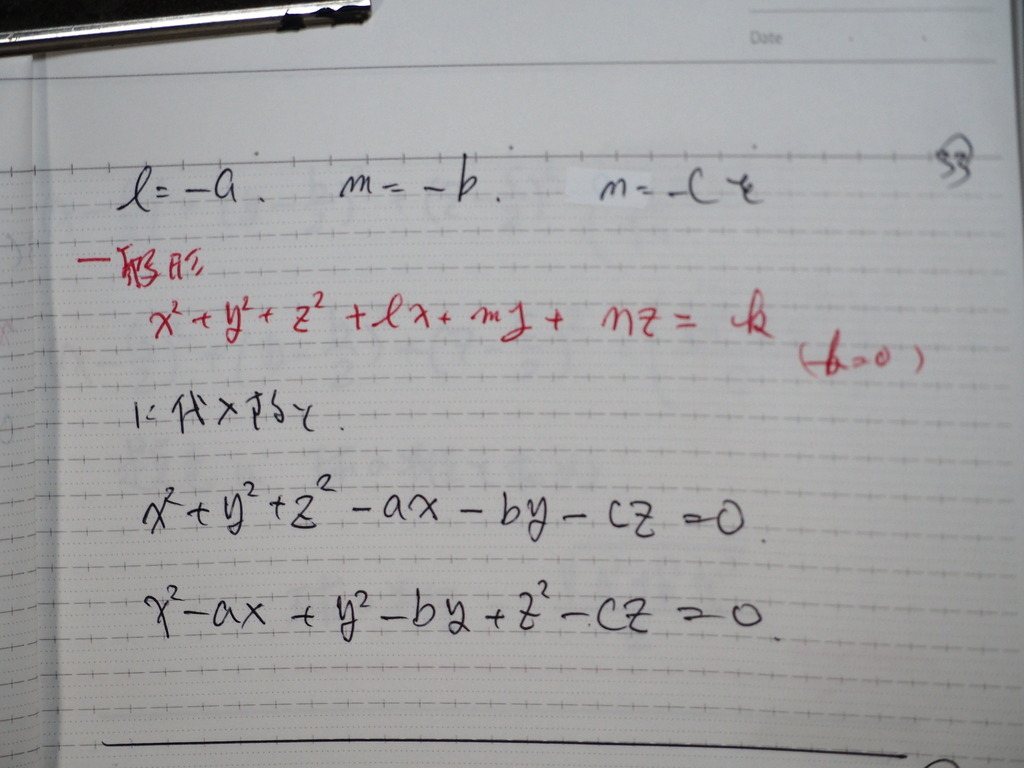 Date
33
l = -a. m = -b. n = -c を
一般形
x² + y² + z² + lx + my + nz = k
(k=0)
に代入すると.
x² + y² + z² - ax - by - cz = 0.
x² - ax + y² - by + z² - cz = 0.